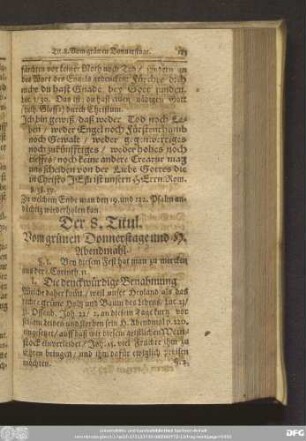 Tit. 8. Vom grünen Donnerstage.
fürchten vor keiner Noth noch Tod / sondern an
das Wort des Engels gedencken: Fürchte dich
nicht du hast Gnade bey Gott funden.
Luc. 1/30. Das ist / du hast einen
durch Christum.
Ich bin gewiß daß weder Tod noch Le-
ben / weder Engel noch Fürstenthumb
noch Gewalt / weder gegenwertiges
noch zukünfftiges / weder hohes noch
tieffes / noch keine andere Creatur mag
uns scheiden von der Liebe Gottes die
in Christo JEsu ist unserm HErrn Rom.
8. 38. 39.
Zu welchem Ende man den 19. und 122. Psalm an-
wiederholen kan.
Der 8. Titul.
Vom grünen Donnerstage und H.
Abendmahl.
§. 1. Bey diesem Fest hat man zu mercken
aus der 1. Corinth. 11.
1. Die denckwürdige Benahmung
Welche daher kömt / weil unser Heyland als das
rechte grüne Holtz und Baum des Lebens / Luc. 23/
31. Offenb. 22/ 2. an diesem Tage
sein H. Abendmal
eingesetzet / auff daß wir diesem geistlichen Wein-
stock einverleibet / Joh. 15. viel Früchte ihm zu
Ehren bringen / und ihn dafür ewiglich preisen
möchten.